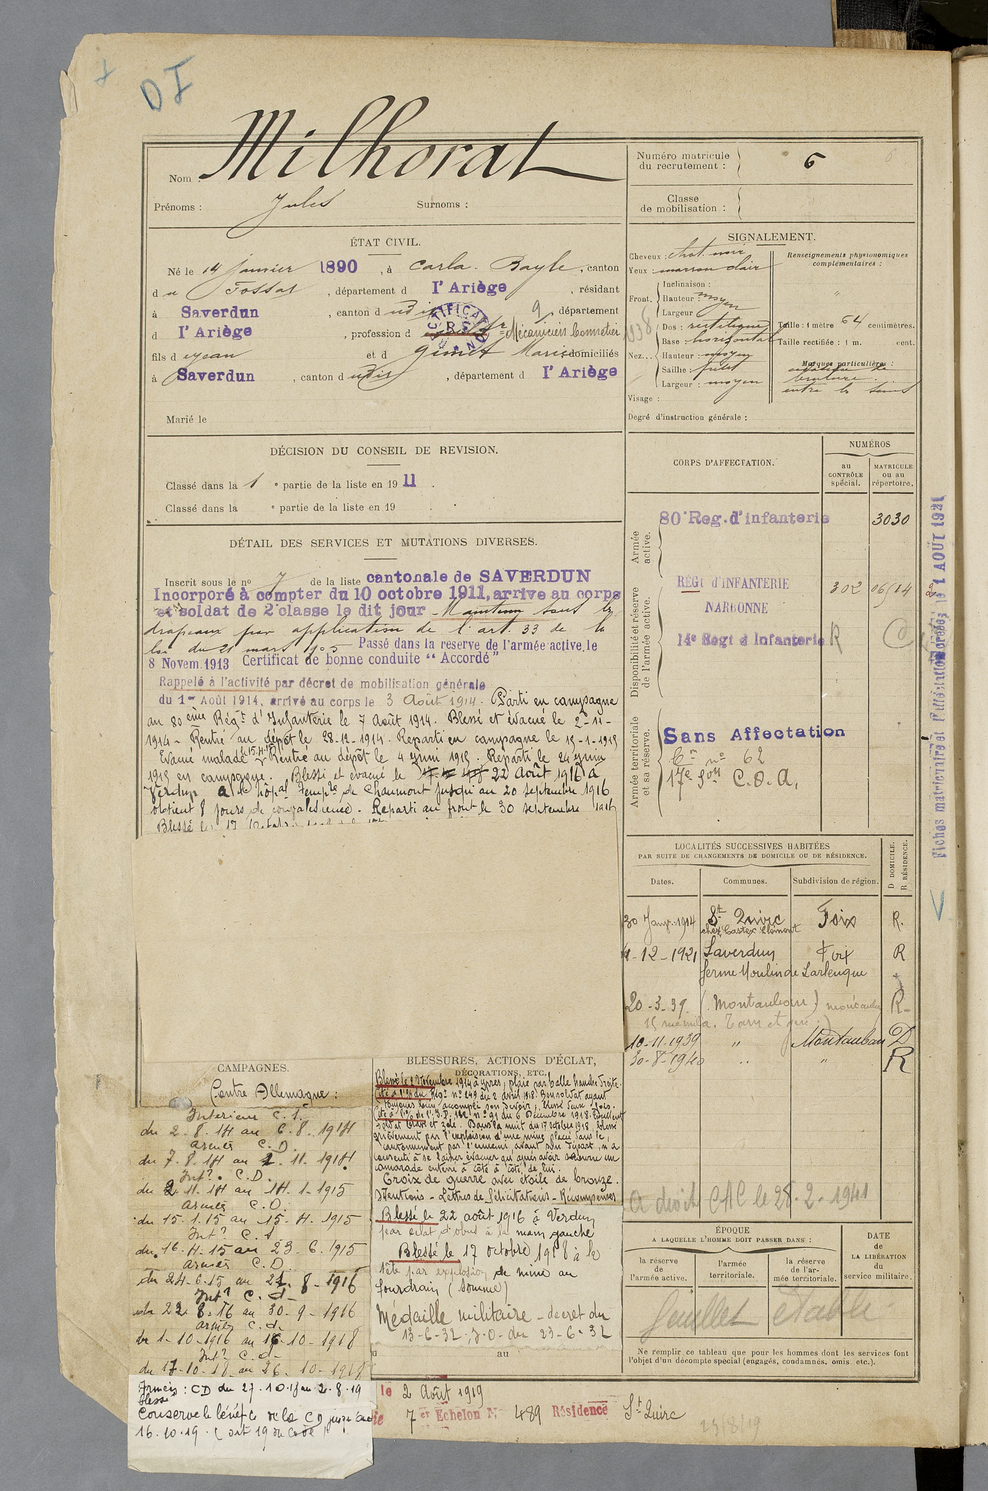 DI
Milhorat
Nom :
Prénoms : Jules Surnoms :
ÉTAT CIVIL.
Né le 14 janvier 1890, à Carla-Bayle, canton
du Fossat, département d l'Ariège, résidant
à Saverdun, canton d dit, département
d l'Ariège, profession d Mécanicien
fils d Jean et d Marie domiciliés
à Saverdun, canton d dit, département d l'Ariège
Marié le
DÉCISION DU CONSEIL DE REVISION.
Classé dans la 1e partie de la liste en 1911.
Classé dans la e partie de la liste en 19
DÉTAIL DES SERVICES ET MUTATIONS DIVERSES.
Inscrit sous le no 7 de la liste cantonale de SAVERDUN
Incorporé à compter du 10 octobre 1911, arrive au corps
et soldat de 2e classe le dit jour. Maintenu sous les
drapeaux par application de l'art. 33 de la
loi du 21 mars 1905 Passé dans la réserve de l'armée active, le
8 Novem. 1913 Certificat de bonne conduite "Accordé"
Rappelé à l'activité par décret de mobilisation générale
du 1er Août 1914, arrivé au corps le 3 Août 1914. Parti en campagne
au 80ème Régt d'Infanterie le 7 Août 1914. Blessé et évacué le 2-11-
1914 - Rentré au dépôt le 28-12-1914. Reparti en campagne le 15-1-1915
Évacué malade Rentré au dépôt le 4 juin 1915. Reparti le 24 juin
1915 en campagne. Blessé et évacué le 22 août 1916 à
Verdun à l'hôpal tempre de Chaumont jusqu'au 20 septembre 1916
obtient 8 jours de convalescence. Reparti au front le 30 septembre 1916
Blessé le 17 Octobre
Numéro matricule
du recrutement : 6
Classe
de mobilisation :
SIGNALEMENT.
Cheveux chat. noir
Yeux marron clair
Inclinaison :
Front. Hauteur moyen
Largeur
Dos : rectiligne
Base : horizontal
Nez. Hauteur : moyen
Saillie : petit
Largeur : moyen
Visage :
Degré d'instruction générale :
Renseignements physionomiques
complémentaires :
Taille : 1 mètre 64 centimètres.
Taille rectifiée : 1 m. cent.
Marques particulières :
cicatrice de
brulure
entre les
CORPS D'AFFECTATION.
NUMÉROS
au
CONTRÔLE
spécial.
MATRICULE
ou au
répertoire.
Armée
active.
80e Reg. d'infanterie 3030
Disponibilité et réserve
de l'armée active.
RÉGt d'INFANTERIE 302
NARBONNE
14e Regt d'Infanterie R
Armée territoriale
et sa réserve.
Sans Affectation
Cn no 62
17e Son C.O.A.
Fiches matriculaires 1 AOUT 1921
LOCALITÉS SUCCESSIVES HABITÉES
PAR SUITE DE CHANGEMENTS DE DOMICILE OU DE RÉSIDENCE.
Dates. Communes. Subdivision de région. D DOMICILE. R RÉSIDENCE.
30 Janv. 1914 St Quirc Foix R.
chez Castex Clément
-12-1921 Saverdun Foix R
ferme Moulin de Larlenque
20-3-39 (Montauban) R
10-11-1939 " Montauban D
30-8-1940 " " R
a droit CAC le 28-2-1941
ÉPOQUE
A LAQUELLE L'HOMME DOIT PASSER DANS :
la réserve
de
l'armée active.
l'armée
territoriale.
la réserve
de l'ar-
mée
territoriale.
DATE
de
LA LIBÉRATION
du
service militaire.
feuillet établi
Ne remplir ce tableau que pour les hommes dont les services font
l'objet d'un décompte spécial (engagés, condamnés, omis, etc.).
CAMPAGNES.
Contre Allemagne :
Intérieur C.S.
du 2-8-14 au 6-8-1914
Armées C.D.
du 7-8-14 au 2-11-1914
Intr C.D.
du 2-11-14 au 14-1-1915
Armées C.D.
du 15-1-15 au 15-4-1915
Intr C.S.
du 16-4-15 au 23-6-1915
Armées C.D.
du 24-6-15 au 21-8-1916
Intr C.d.
du 22-8-16 au 30-9-1916
Armées C.d.
du 1-10-1916 au 16-10-1918
Intr C.d.
du 17-10-18 au 26-10-1918
Armées : CD du 27-10-18 au 2-8-19
blessé
Conserve le bénéfce de la CD jusqu'au
16-10-19
BLESSURES, ACTIONS D'ÉCLAT,
DÉCORATIONS, ETC.
Blessé le 2 Novembre 1914 à Ypres, plaie par balle hanche droite.
Cité à l'O. du Régt no 149 du 2 avril 1918. Bon soldat ayant
toujours bien accompli son devoir, blessé deux fois.
Soldat et zélé. Dans la nuit du 17 octobre 1918, blessé
grièvement par l'explosion d'une mine placée dans le
cantonnement par l'ennemi avant son départ, n'a
consenti à se laisser évacuer qu'après avoir secouru un
camarade enterré à côté de lui.
Croix de guerre avec étoile de bronze.
Mentions - Lettres de félicitations - Récompenses
Blessé le 22 août 1916 à Verdun
par éclat d'obus à la main gauche
Blessé le 17 octobre 1918 à la
tête par explosion de mine au
Tourdrain (Somme)
Médaille militaire - décret du
13-6-32 J.O. du 23-6-32
au
le 2 Août 1919
7e Echelon No 489 Résidence St Quirc
23/8/19